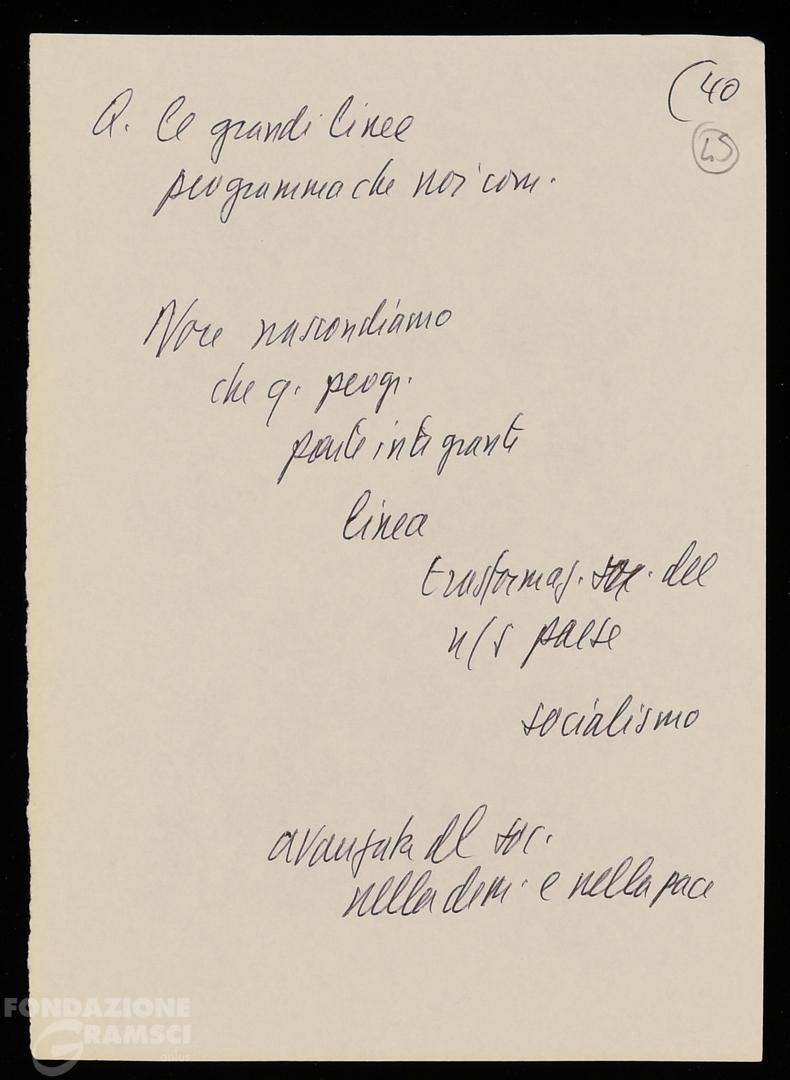 (40
45
Q. le grandi linee
programma che noi com.
Non nascondiamo
che q. progr.
parte integrante
linea
trasformaz. soc. del
n/s paese
socialismo
avanzata al soc.
nella dem. e nella pace
FONDAZIONE
GRAMSCI
onlus